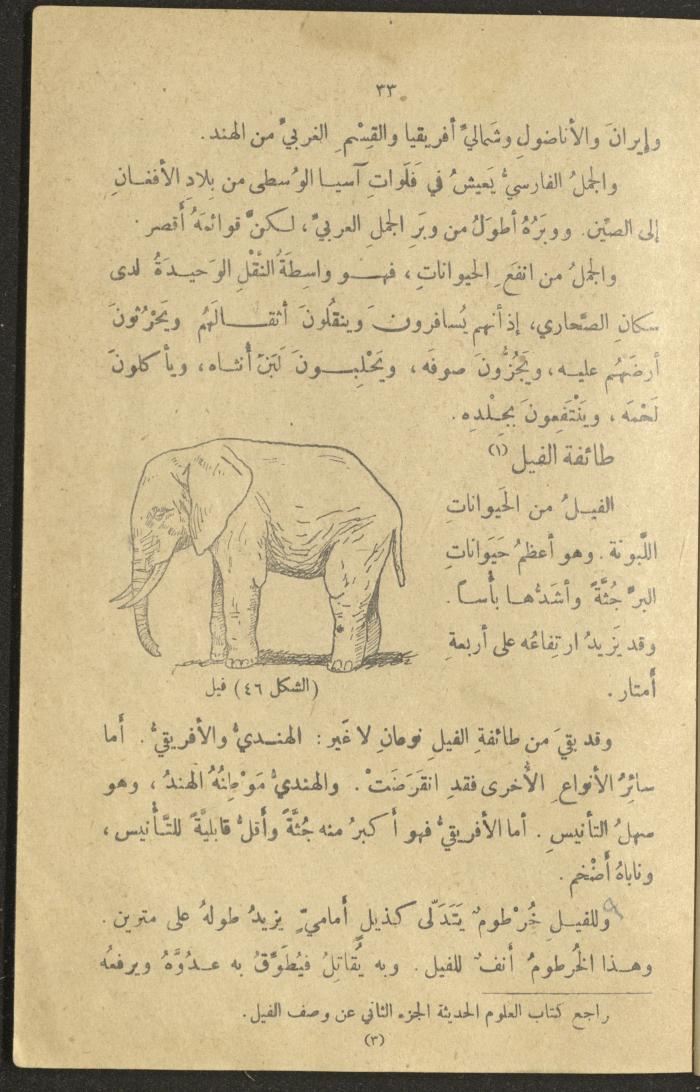 ٣٣
وإيرانَ والأناضولِ وشَماليِّ أفريقيا والقِسْمِ الغربيِّ من الهند.
والجملُ الفارسيُّ يَعيشُ في فَلَواتِ آسيا الوُسطى من بِلادِ الأفغـانِ
إلى الصّين. ووبَرُهُ أطوَلُ من وبَرِ الجملِ العربيِّ، لـكنَّ قوائمَهُ أقصر.
والجملُ من انفَعِ الحيواناتِ، فهـو واسِطَةُ النَّقْلِ الوَحيـدَةُ لدى
سكانِ الصَّحاري، إذ أنهم يُسافرونَ وينقُلونَ أثقـالَهُم ويَحْرُثونَ
أرضَهُم عليـه، ويَجُزُّونَ صوفَه، ويَحْلِبـونَ لَبَنَ أُنثـاه، ويأكلونَ
لَحْمَه، ويَنْتَفِعونَ بجـلْدِه.
طائفة الفيل (١)
الفيـلُ من الحَيواناتِ
اللَّبونة. وهو أعظمُ حَيَوَاناتِ
البرِّ جُثَّةً وأشَدُّهـا بأْسـاً.
وقد يَزيدُ ارتِفاعُه على أربعةِ
أمتار.
(الشكل ٤٦) فيل
وقد بقيَ من طائفةِ الفيلِ نوعانِ لا غَير: الهنـديُّ والأفريقيُّ. أما
سائِرُ الأنواعِ الأُخرى فقدِ انقرَضَتْ. والهنديُّ مَوْطِنُهُ الهندُ، وهو
سهلُ التأنيسِ. أما الأفريقيُّ فهو أكبرُ منه جُثَّةً وأقلُّ قابليَّةً للتَّـأْنيس،
وناباهُ أضْخم.
وللفيـلِ خُرْطومٌ يَتَدَلّى كـذيلٍ أماميٍّ يزيدُ طولهُ على مترين.
وهـذا الخُرطومُ أنفٌ للفيل. وبه يُقاتِلُ فيُطَوِّقُ به عـدُوَّهُ ويرفعهُ
راجع كتاب العلوم الحديثة الجزء الثاني عن وصف الفيل.
(٣)